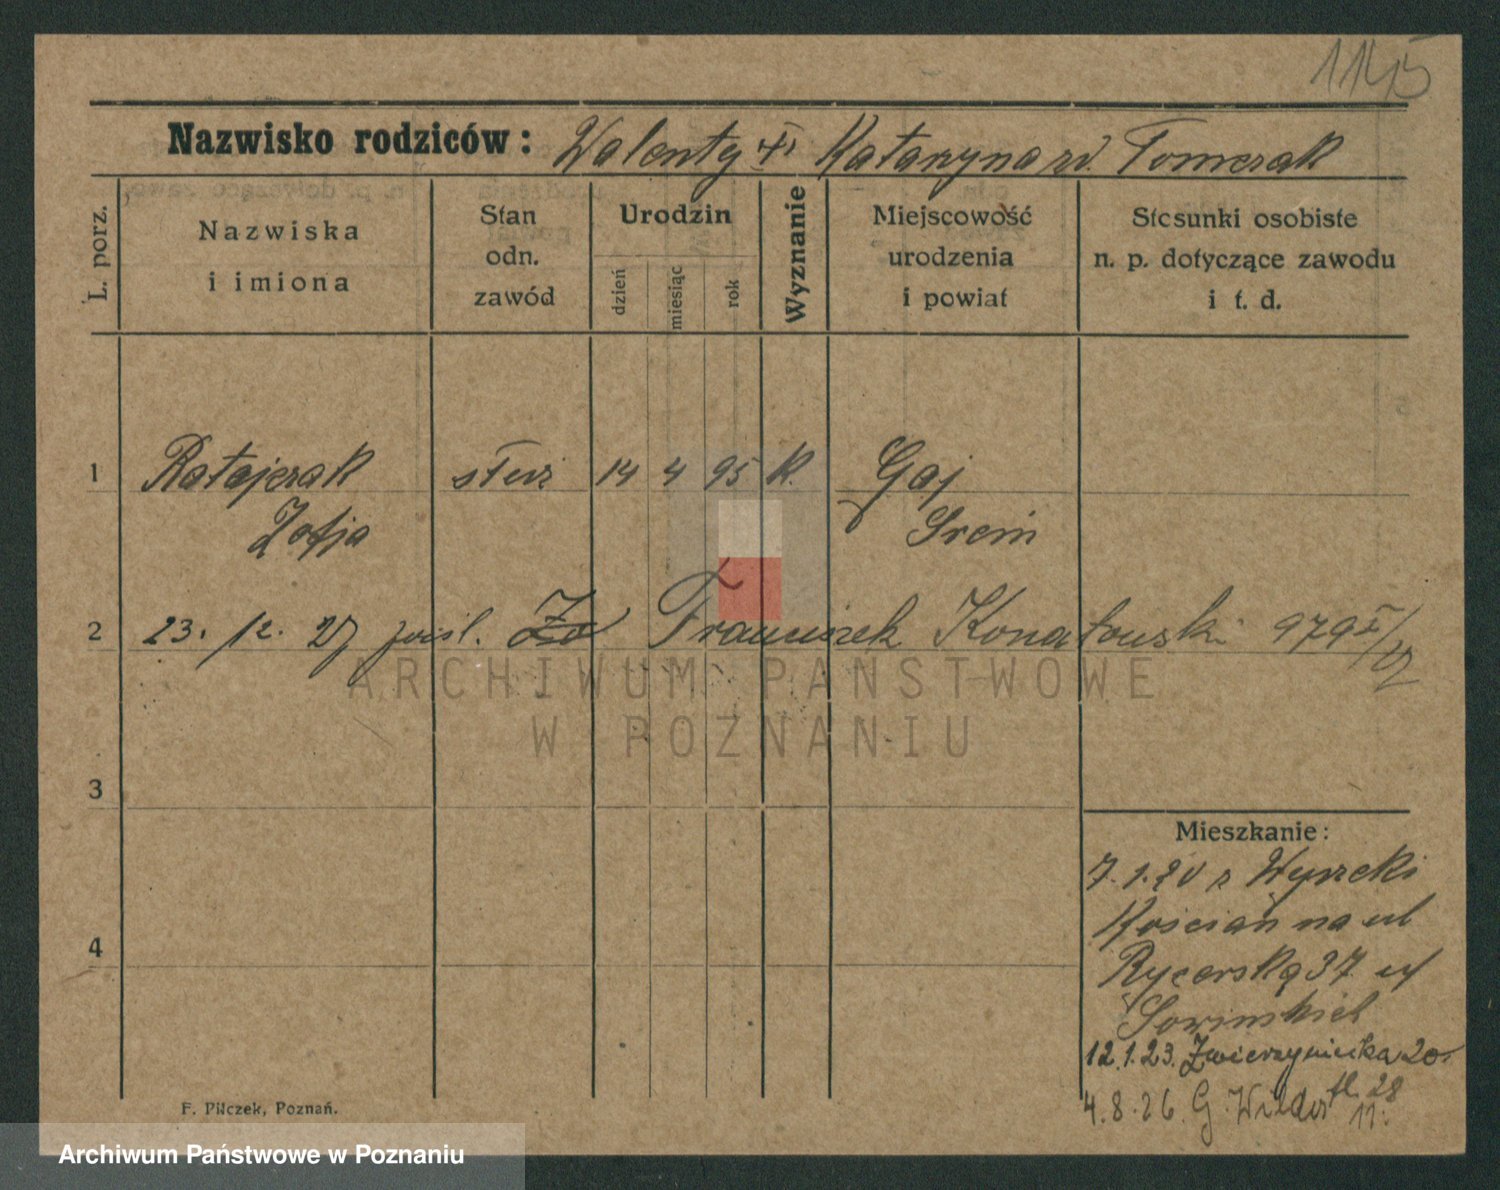 1145
Nazwisko rodziców: Walenty i Katarzyna zd. Tomczak
L. porz.
Nazwiska
i imiona
Stan
odn.
zawód
Urodzin
dzień
miesiąc
rok
Wyznanie
Miejscowość
urodzenia
i powiat
Stosunki osobiste
n. p. dotyczące zawodu
i t. d.
1 Ratajczak służ 14 4 95 K. Gaj
Zofja Śrem
2 23. 12. 27 Franciszek Konatowski 979
ARCHIWUM PAŃSTWOWE
W POZNANIU
3
Mieszkanie:
7.1.20 z Wyrzeki
Kościan na ul
Rycerską 37 u
12.1.23. Zwierzyniecka 20
4
4.8.26. G. Wilda 28
F. Pilczek, Poznań.
Archiwum Państwowe w Poznaniu